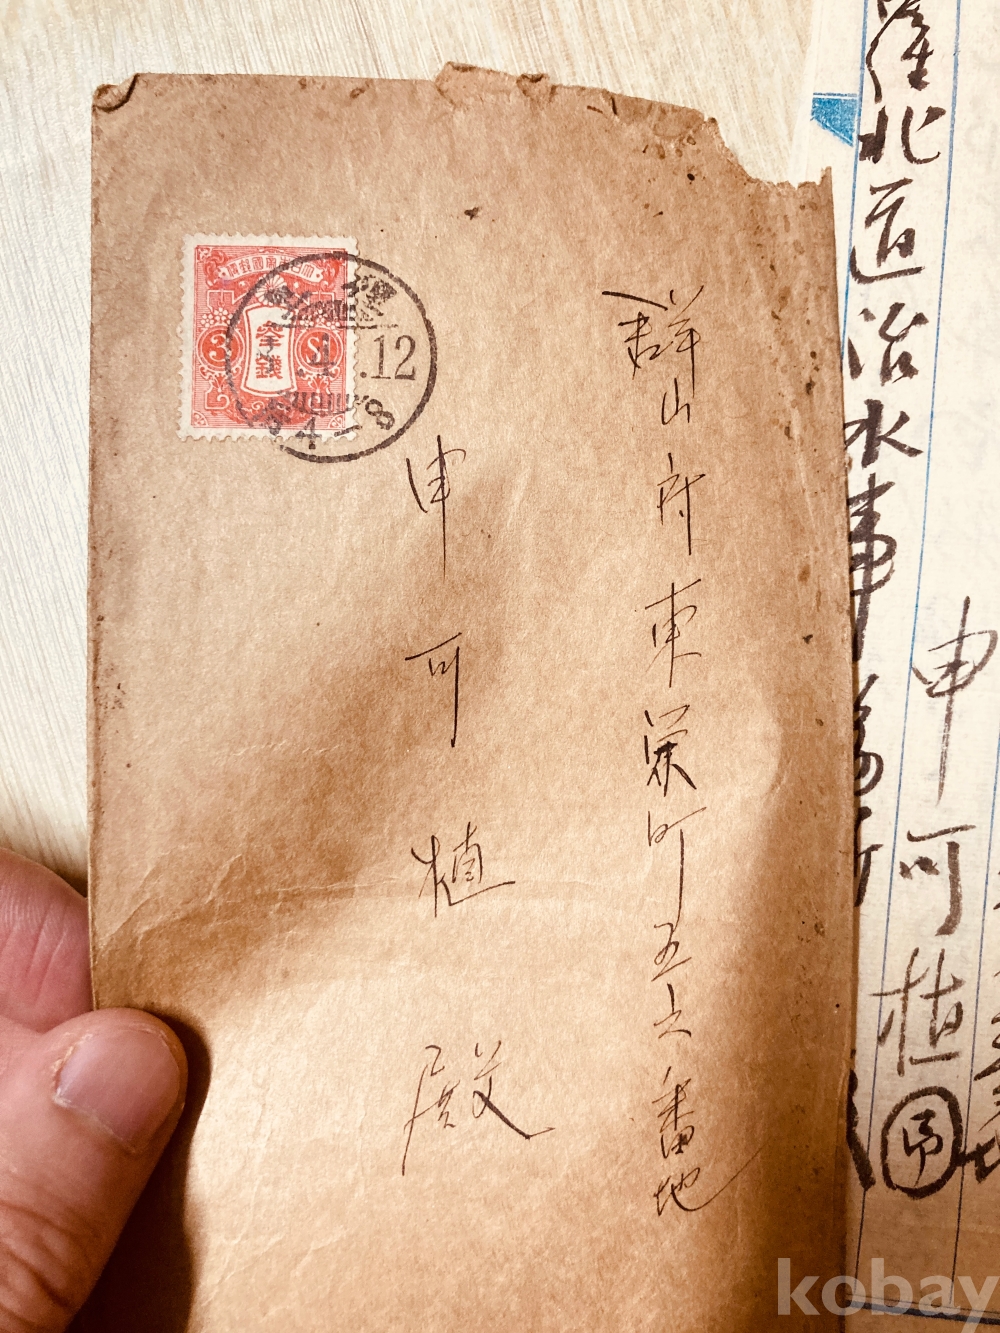 群山府東栄町五六番地
申可植殿
大日本帝國郵便
3
参銭
Sn
4.12
4-8
羅北道治水事務所
申可植
kobay